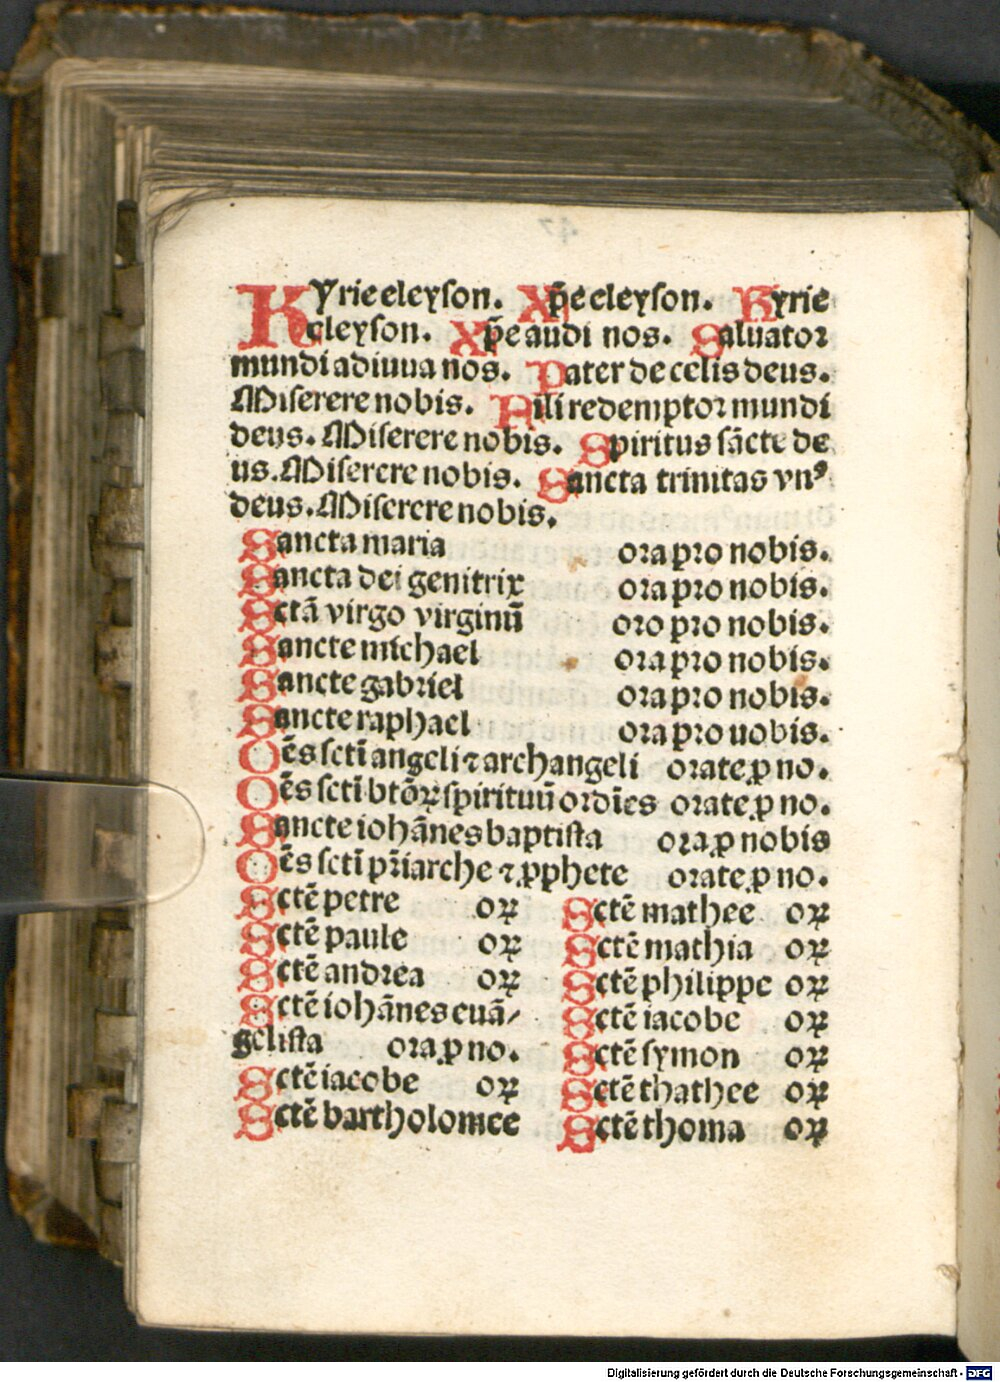 Kyrie eleyson. Xp̄e eleyson. Kyrie
eleyson. Xp̄e audi nos. Saluator
mundi adiuua nos. Pater de celis deus.
Miserere nobis. Fili redemptor mundi
deus. Miserere nobis. Spiritus sācte de
us. Miserere nobis. Sancta trinitas vnꝰ
deus. Miserere nobis.
Sancta maria ora pro nobis.
Sancta dei genitrix ora pro nobis.
Sctā virgo virginū oro pro nobis.
Sancte michael ora pro nobis.
Sancte gabriel ora pro nobis.
Sancte raphael ora pro uobis.
Oēs sctī angeli ⁊ archangeli orate ꝓ no.
Oēs sctī btōꝝ spirituū ordīes orate ꝓ no.
Sancte iohānes baptista ora ꝓ nobis
Oēs sctī pr̄iarche ⁊ ꝓphete orate ꝓ no.
Sctē petre oꝝ
Sctē paule oꝝ
Sctē andrea oꝝ
Sctē iohānes euā/
gelista ora ꝓ no.
Sctē iacobe oꝝ
Sctē bartholomee
Sctē mathee oꝝ
Sctē mathia oꝝ
Sctē philippe oꝝ
Sctē iacobe oꝝ
Sctē symon oꝝ
Sctē thathee oꝝ
Sctē thoma oꝝ
Digitalisierung gefördert durch die Deutsche Forschungsgemeinschaft - DFG